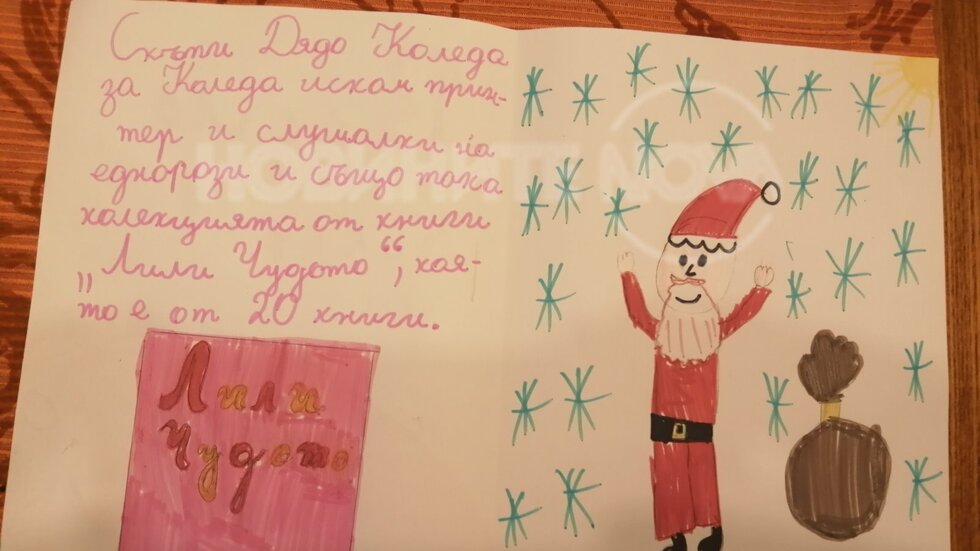 Скъпи Дядо Коледа
за Коледа искам прин-
тер и слушалки на
еднорози и също така
колекцията от книги
„Лили Чудото“, коя-
то е от 20 книги.
Лили
Чудото
НОВИНИТЕ NOVA